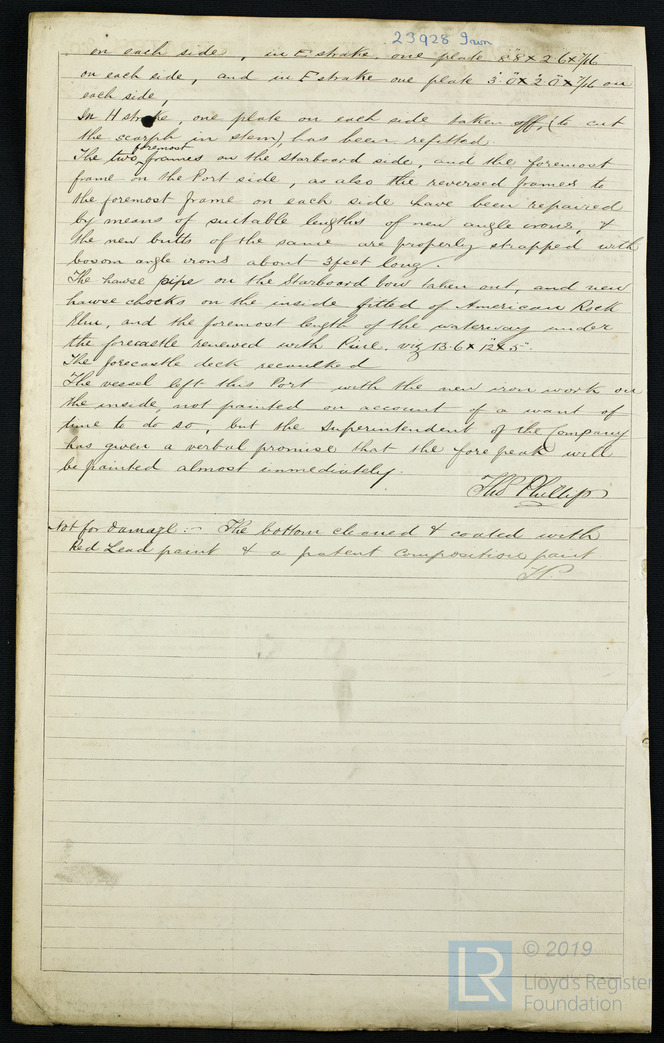 23928 Iron
on each side, in E strake, one plate 8'.8" x 2.6 x 7/16
on each side, and in F strake one plate 3'.0" x 2'.0" x 7/16 on
each side,
In H strake, one plate on each side taken off, (to cut
the scarph in stem), has been refitted.
foremost
The two frames on the starboard side, and the foremost
frame on the Port side, as also the reversed frames to
the foremost frame on each side have been repaired
by means of suitable lengths of new angle irons, &
the new butts of the same are properly strapped with
bosom angle irons about 3 feet long.
The hawse pipe on the Starboard bow taken out, and new
hawse chocks on the inside fitted of American Rock
Elm, and the foremost length of the waterway under
the forecastle renewed with Pine. viz 13.6 x 12 x 5".
The forecastle deck recaulked
The vessel left this Port with the new iron work on
the inside, not painted on account of a want of
time to do so, but the Superintendent of the Company
has given a verbal promise that the fore peak will
be painted almost immediately.
Thos Phillips
Not for Damage :- The bottom cleaned & coated with
Red Lead paint & a patent composition paint
T.P.
LR
© 2019
Lloyd's Register
Foundation